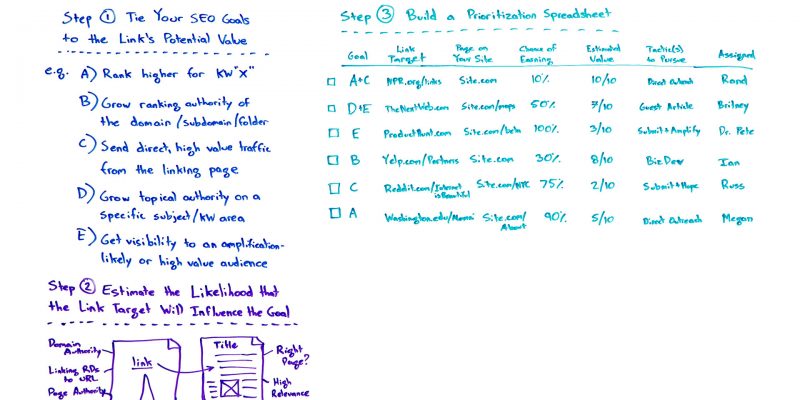 Step 1 Tie Your SEO Goals
to the Link's Potential Value
e.g. A) Rank higher for KW "X"
B) Grow ranking authority of
the domain/subdomain/folder
C) Send direct, high value traffic
from the linking page
D) Grow topical authority on a
specific subject/KW area
E) Get visibility to an amplification-
likely or high value audience
Step 2 Estimate the Likelihood that
the Link Target Will Influence the Goal
Domain
Authority
Linking RDs
to URL
Page Authority
link
Title
Right
Page?
High
Relevance
Step 3 Build a Prioritization Spreadsheet
Goal Link Target Page on Your Site Chance of Earning Estimated Value Tactic(s) to Pursue Assigned
A+C NPR.org/links Site.com 10% 10/10 Direct Outreach Rand
D+E TheNextWeb.com Site.com/maps 50% 7/10 Guest Article Britney
E ProductHunt.com Site.com/beta 100% 3/10 Submit + Amplify Dr. Pete
B Yelp.com/Partners Site.com 30% 8/10 BizDev Ian
C Reddit.com/Internet is Beautiful Site.com/NYC 75% 2/10 Submit + Hope Russ
A Washington.edu/ Site.com/About 90% 5/10 Direct Outreach Megan